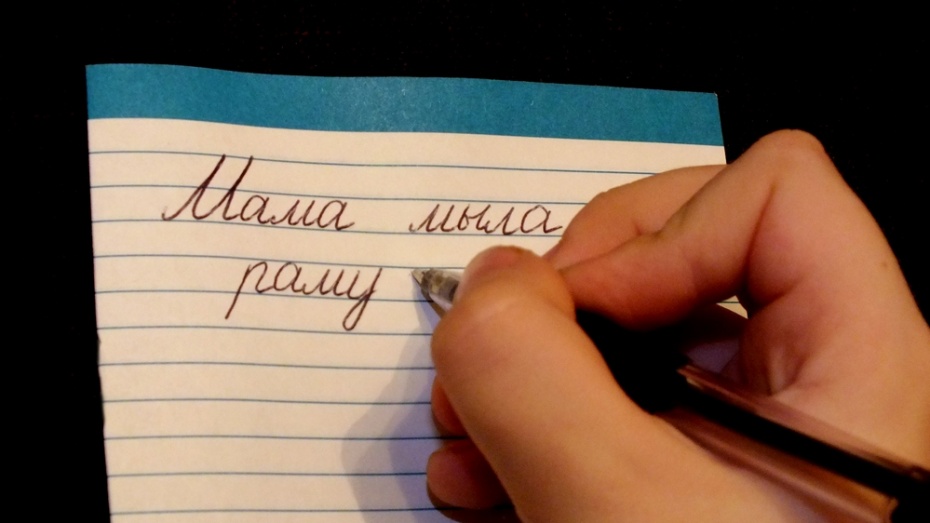 Мама мыла
раму